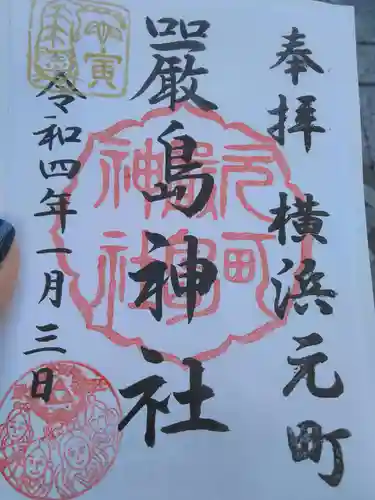 奉拝 横浜元町
嚴島神社
令和四年一月三日
元町
嚴島
神社